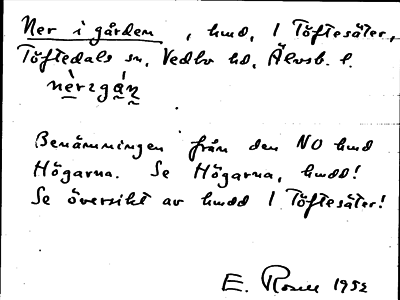 Ner i gården, hmd, 1 Töftesäter,
Töftedals sn, Vedbo hd, Älvsb. l.
Benämningen från den NO hmd
Högarna. Se Högarna, hmdd!
Se översikt av hmdd 1 Töftesäter!
E. Rosell 1952